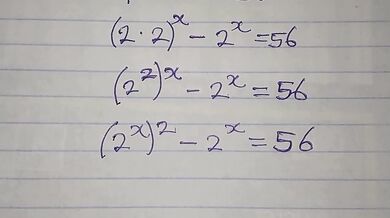 (2·2)^x − 2^x = 56
(2^2)^x − 2^x = 56
(2^x)^2 − 2^x = 56